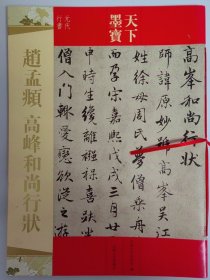 天下
墨寶
元代
行書
趙孟頫 高峰和尚行狀
高峯和尚行狀
師諱原妙號高峯吳江
姓徐母周氏夢僧乘舟
而孕宋嘉熙戊戌三月廿
申時生纔離襁褓喜趺坐
僧入門輒愛戀欲從之游